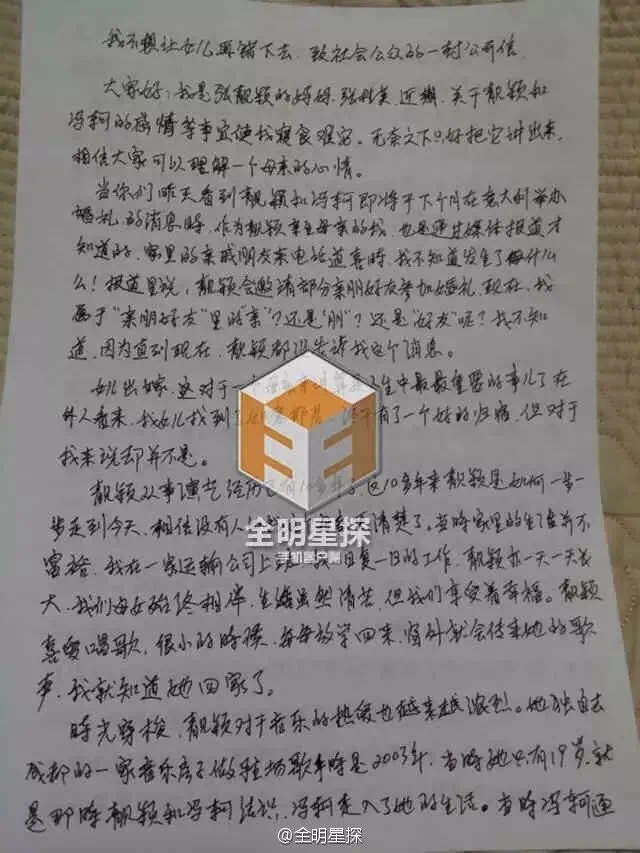 我不想让女儿再错下去，致社会公众的一封公开信
大家好，我是张靓颖的妈妈，张桂英，近期，关于靓颖和
冯轲的感情等事宜使我寝食难安。无奈之下只好把它讲出来，
相信大家可以理解一个母亲的心情。
当你们昨天看到靓颖和冯轲即将于下个月在意大利举办
婚礼的消息时，作为靓颖亲生母亲的我，也是通过媒体报道才
知道的，家里的亲戚朋友来电话道喜时，我不知道发生了什么
么！报道里说，靓颖会邀请部分亲朋好友参加婚礼，现在，我
属于“亲朋好友”里的“亲”？还是“朋”？还是“好友”呢？我不知
道，因为直到现在，靓颖都没告诉我这个消息。
女儿出嫁，这对于一个 生中最最重要的事儿了在
外人看来，我女儿找到了 有了一个好的归宿，但对于
我来说却并不是。
靓颖从事演艺经历已有10多年了。这10多年来靓颖是如何一步一
步走到今天，相信没有人 清楚了。当时家里的生活并不
富裕，我在一家运输公司上 日复一日的工作，靓颖亦一天一天长
大，我们母女始终相伴，生活虽然清苦，但我们享受着幸福。靓颖
喜爱唱歌，很小的时候，每每放学回来，窗外就会传来她的歌
声，我就知道她回家了。
时光穿梭，靓颖对于音乐的热爱也越来越浓烈。她独自去
成都的一家音乐房子做驻场歌手时是2003年，当时她只有19岁，就
是那时靓颖和冯轲结识，冯轲走入了她的生活。当时冯轲通
全明星探
手机客户端
@全明星探